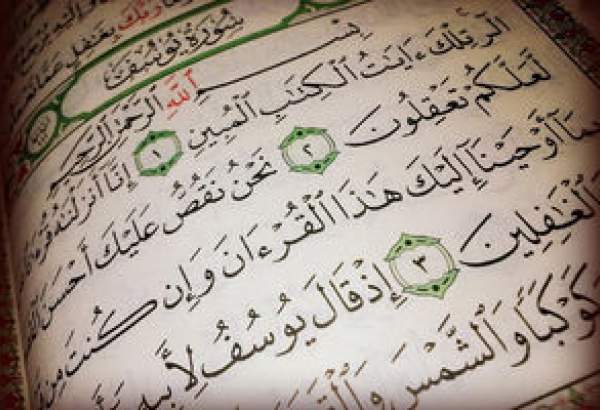 رَبُّكَ بِغَٰفِلٍ عَمَّا
سُورَةُ يُوسُفَ
بِسْمِ ٱللَّهِ ٱلرَّحْمَٰنِ ٱلرَّحِيمِ
الٓر تِلْكَ ءَايَٰتُ ٱلْكِتَٰبِ ٱلْمُبِينِ ١ إِنَّآ أَنزَلْنَٰهُ
لَّعَلَّكُمْ تَعْقِلُونَ ٢ نَحْنُ نَقُصُّ عَلَيْكَ أَحْسَنَ
بِمَآ أَوْحَيْنَآ إِلَيْكَ هَٰذَا ٱلْقُرْءَانَ وَإِن كُنتَ مِن
ٱلْغَٰفِلِينَ ٣ إِذْ قَالَ يُوسُفُ لِأَبِيهِ
كَوْكَبًا وَٱلشَّمْسَ وَٱلْقَمَرَ